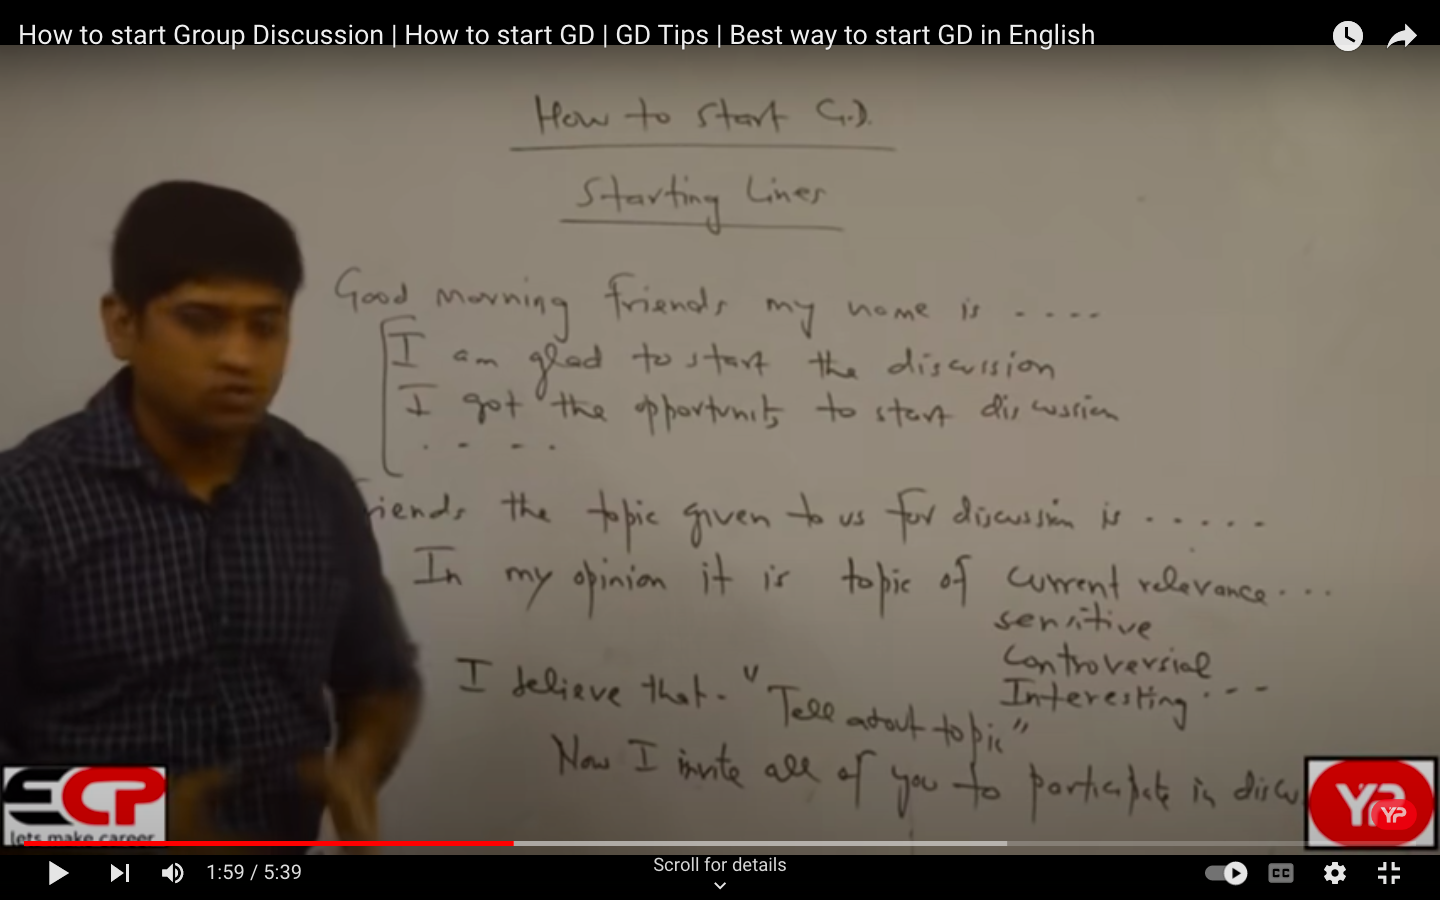 How to start Group Discussion | How to start GD | GD Tips | Best way to start GD in English
How to start G.D.
Starting Lines
Good morning friends my name is ....
I am glad to start the discussion
I got the opportunity to start discussion
. - - .
riends the topic given to us for discussion is .....
In my opinion it is topic of current relevance...
sensitive
controversial
Interesting ---
I believe that - "Tell about topic"
Now I invite all of you to participate in discu
ECP
lets make career
YP
YP
1:59 / 5:39
Scroll for details
CC